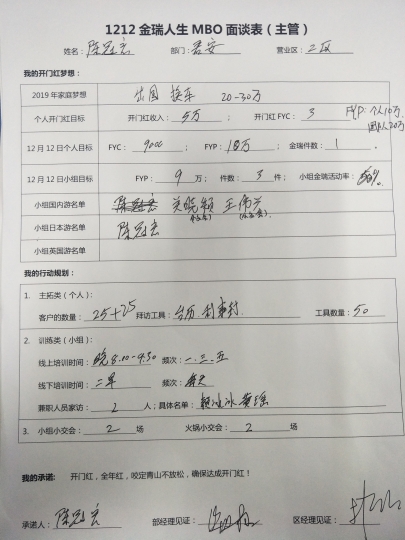 1212金瑞人生 MBO 面谈表（主管）
姓名：陈冠宏 部门：君安 营业区：二区
我的开门红梦想：
2019 年家庭梦想 出国 换车 20-30万
个人开门红目标 开门红收入：5万； 开门红 FYC： 3 FYP：个人10万
团队人20万
12 月 12 日个人目标 FYC： 9000； FYP： 1万； 金瑞件数： 1。
12 月 12 日小组目标 FYP： 9 万； 件数： 3 件； 小组金瑞活动率： %
小组国内游名单 吴晓颖 王伟
小组日本游名单 陈冠宏
小组英国游名单
我的行动规划：
1. 主拓类（个人）：
客户的数量： 25+25 拜访工具：台历. 工具数量：50
2. 训练类（小组）：
线上培训时间：晚8.00-9.30 频次：一.三.五
线下培训时间：二早 频次：每天
兼职人员家访： 2 人；具体名单：赖冰冰 黄瑶
3. 小组小交会： 2 场 火锅小交会： 2 场
我的承诺： 开门红，全年红，咬定青山不放松，确保达成开门红！
承诺人：陈冠宏 部经理见证： 区经理见证：